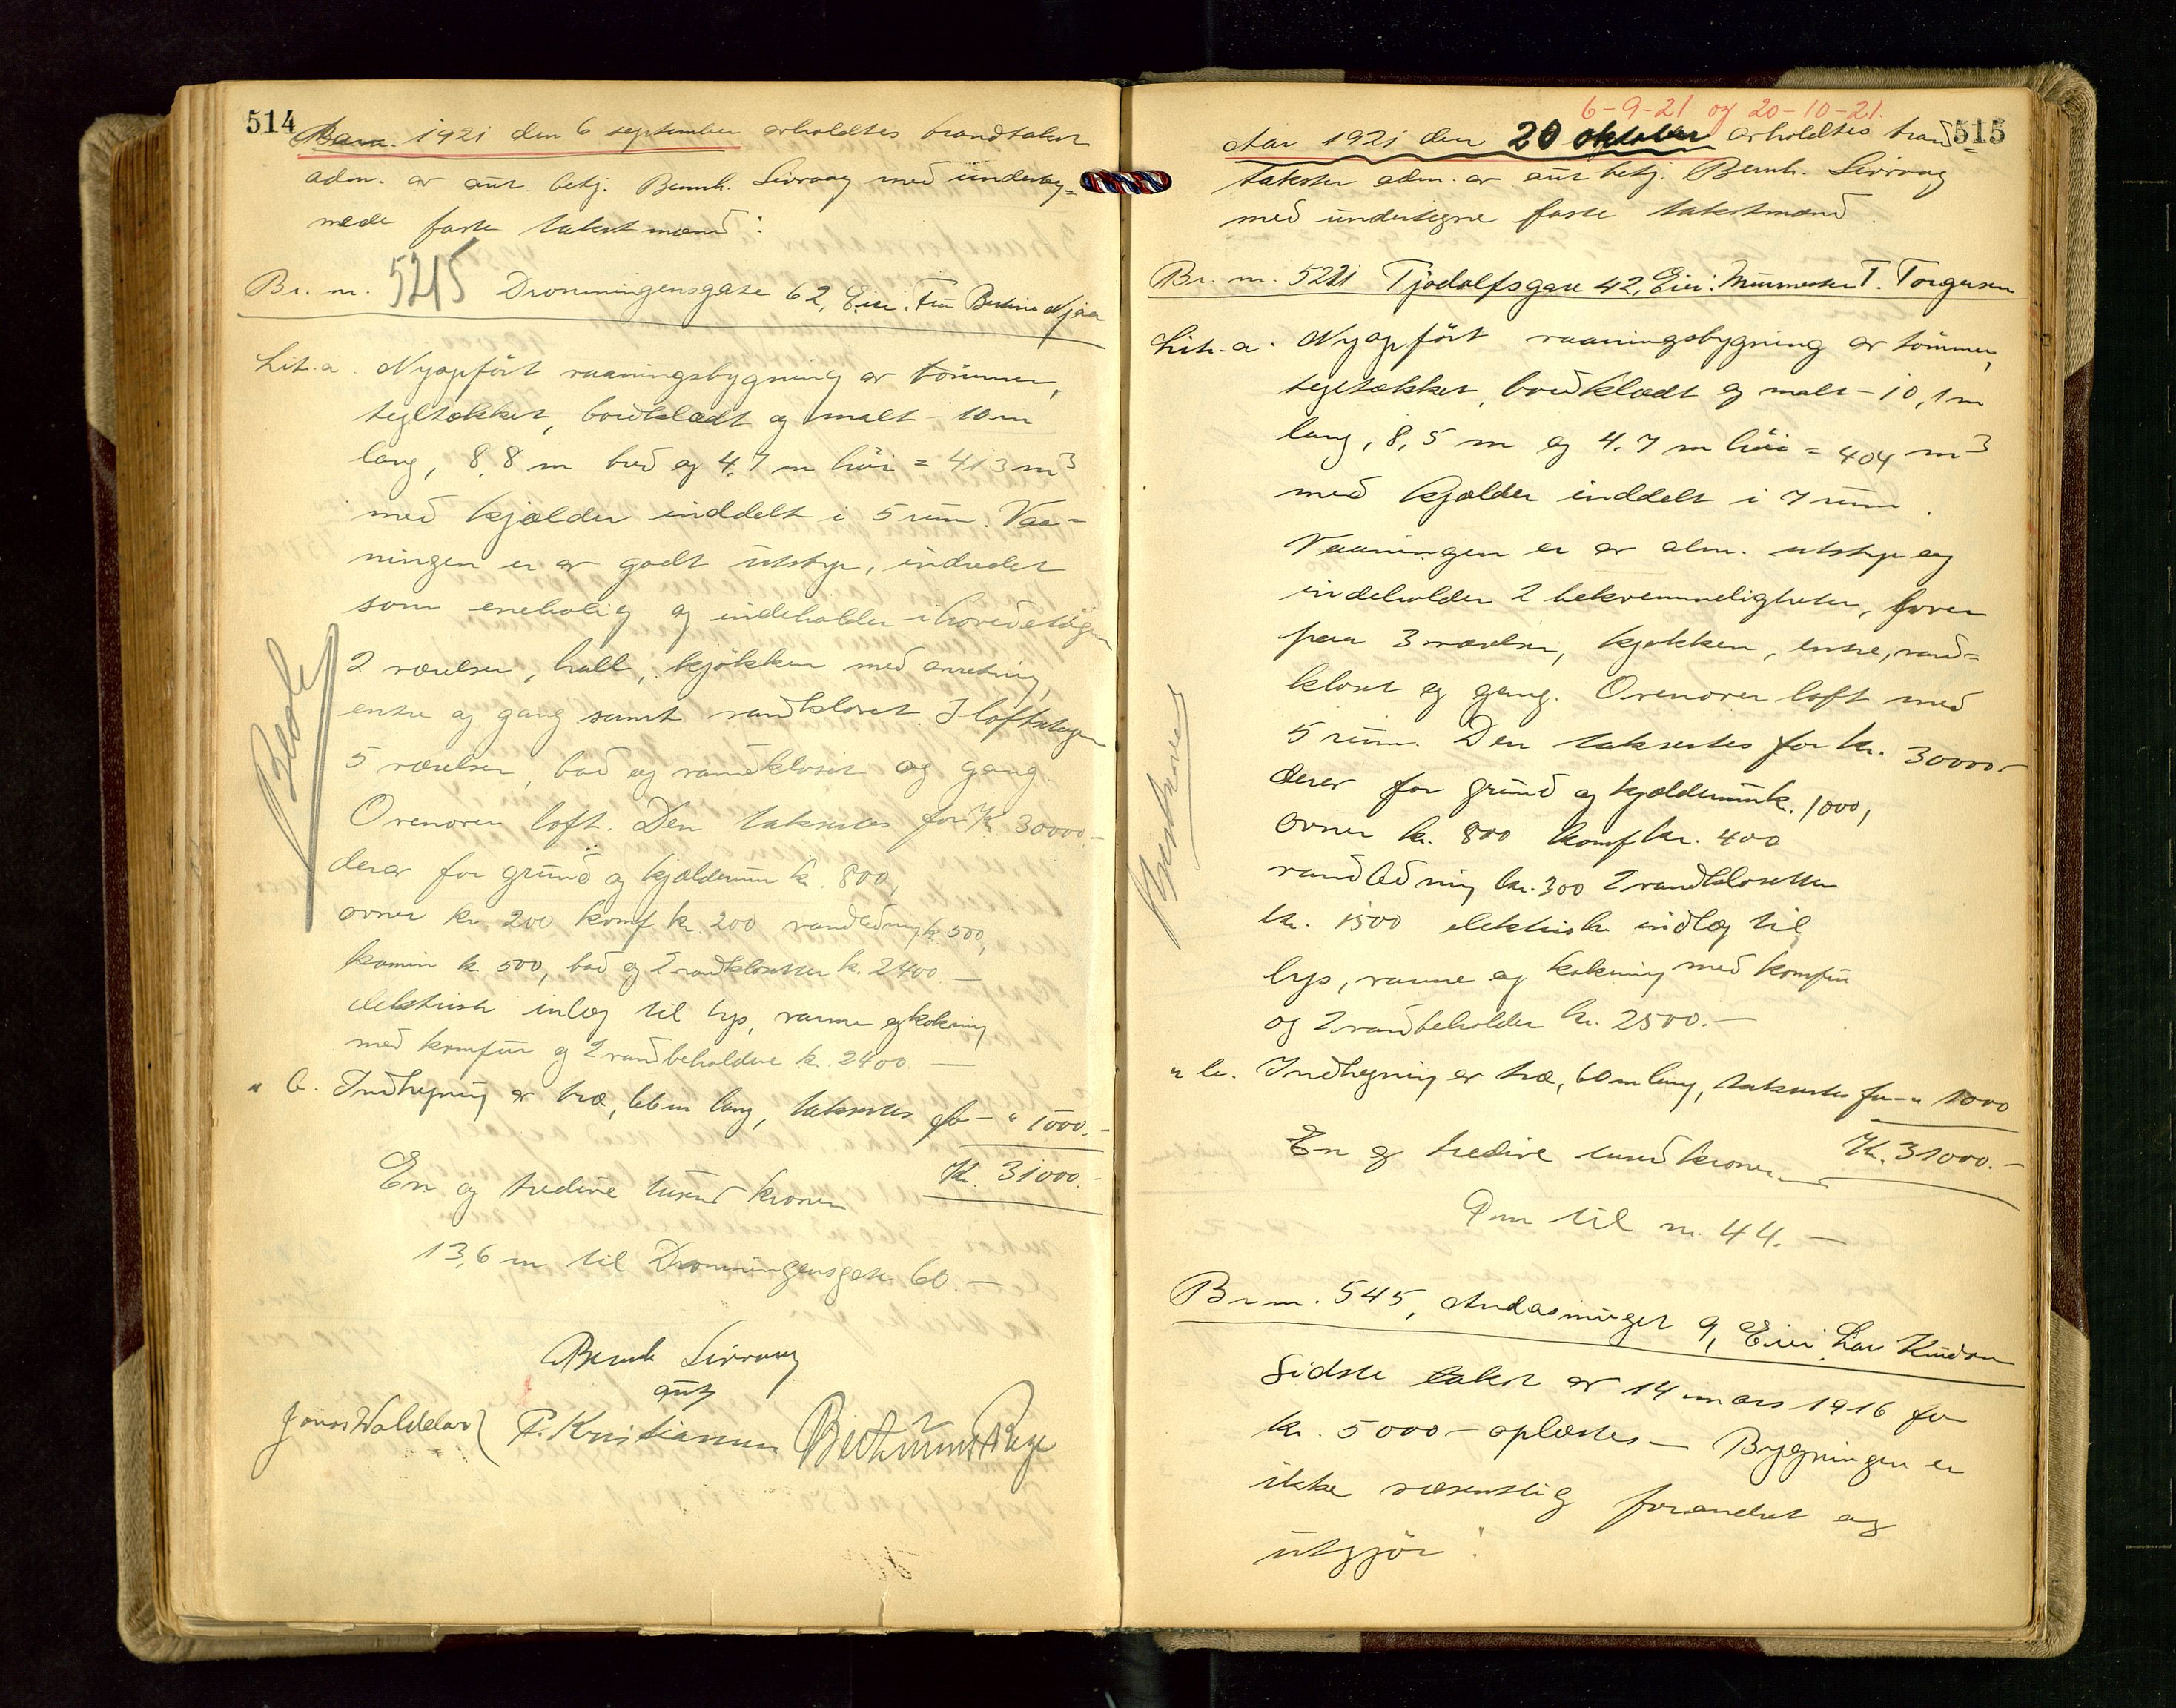 514
1921 den 6 september avholdtes brandtakst
adm. av aut. betj. Bernh. Sivvaag med underteg-
nede faste takstmænd:
Br. nr. 5215 Dronningensgate 62, Eier: Fru Bertine Njaa
Lit. a. Nyopført vaaningsbygning av tømmer,
tegltækket, bordklædt og malt - 10 m
lang, 8,8 m bred og 4,7 m høi = 413 m3
med kjælder inddelt i 5 rum. Vaa-
ningen er av godt utstyr, indredet
som enebolig og indeholder i hovedetagen
2 værelser, hall, kjøkken med anretning,
entre og gang samt vandkloset. I loftsetagen
5 værelser, bad og vandkloset og gang.
Ovenover loft. Den takseres for Kr. 30000.-
derav for grund og kjælderrum kr. 800,
ovner kr. 200 komf kr. 200 vandledning kr. 500,
kamin kr. 500, bad og 2 vandklosetter kr. 2400.-
elektrisk inlæg til lys, varme og kokning
med komfur og 2 vandbeholdere kr. 2400.-
" b. Indhegning av træ, lang, takseres for - " 1000.-
Kr. 31000.-
En og tredive tusend kroner
13,6 m til Dronningensgate 60.-
Bernh Sivvaag
aut
P. Kristiansen
515
6-9-21 og 20-10-21.
Aar 1921 den 20 oktober avholdtes brand-
takster adm. av aut betj. Bernh. Sivvaag
med undertegne faste takstmænd.
Br. nr. 5221 Tjodolfsgate 42, Eier: Murmester T. Torgersen
Lit. a. Nyopført vaaningsbygning av tømmer,
tegltækket, bordklædt og malt - 10,1 m
lang, 8,5 m og 4,7 m høi = 404 m3
med kjælder inddelt i 7 rum.
Vaaningen er av alm. utstyr og
indeholder 2 bekvemmeligheter, hver
paa 3 værelser, kjøkken, entre, vand-
kloset og gang. Ovenover loft med
5 rum. Den takseres for kr. 30000.-
derav for grund og kjælderrum kr. 1000,
ovner kr. 800 komf kr. 400
vandledning kr. 300 2 vandklosetter
kr. 1500 elektriske indlæg til
lys, varme og kokning med komfur
og 2 vandbeholder kr. 2500.-
" b. Indhegning av træ, 60 m lang, takseres for - " 1000
Kr. 31000.-
En og tredive tusend kroner
9 m til nr. 44.-
Br nr. 545, Andasmuget 9, Eier Lars Knudsen
Sidste takst av 14 mars 1916 for
kr. 5000 - oplæstes - Bygningen er
ikke væsentlig forandret og
utgjør: